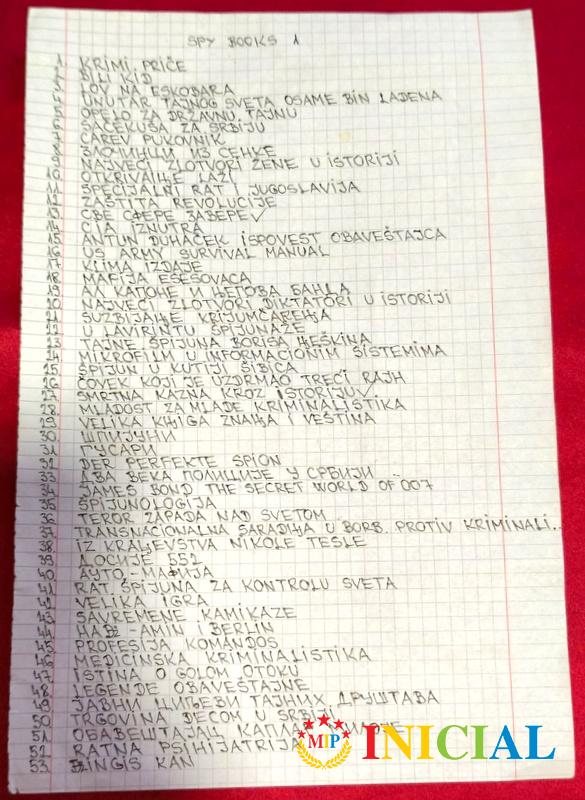 SPY BOOKS 1
1. KRIMI PRIČE
2. BILI KID
3. LOV NA ESKOBARA
4. UNUTAR TAJNOG SVETA OSAME BIN LADENA
5. OPELO ZA DRŽAVNU TAJNU
6. SAČEKUŠA ZA SRBIJU
7. CAREV PUKOVNIK
8. ЗЛОЧИНЦИ ИЗ СЕНКЕ
9. NAJVEĆI ZLOTVORI ŽENE U ISTORIJI
10. OTKRIVAЊE LAŽI
11. SPECIJALNI RAT I JUGOSLAVIJA
12. ZAŠTITA REVOLUCIJE
13. СВЕ СФЕРЕ ЗАВЕРЕ
14. CIA IZNUTRA
15. ANTUN DUHAČEK ISPOVEST OBAVEŠTAJCA
16. US ARMY SURVIVAL MANUAL
17. KLIMA IZDAJE
18. MAFIJA ESESOVACA
19. АЛ КАПОНЕ И ЊЕГОВА БАНДА
20. NAJVEĆI ZLOTVORI DIKTATORI U ISTORIJI
21. SUZBIJAЊE KRIJUMČAREЊA
22. U LAVIRINTU ŠPIJUNAŽE
23. TAJNE ŠPIJUNA BORISA HEŠKINA
24. MIKROFILM U INFORMACIONIM SISTEMIMA
25. ŠPIJUN U KUTIJI ŠIBICA
26. ČOVEK KOJI JE UZDRMAO TREĆI RAJH
27. SMRTNA KAZNA KROZ ISTORIJU
28. MLADOST ZA MLADE KRIMINALISTIKA
29. VELIKA KЊIGA ZNAЊA I VEŠTINA
30. ШПИЈУНИ
31. ГУСАРИ
32. DER PERFEKTE SPION
33. ДВА ВЕКА ПОЛИЦИЈЕ У СРБИЈИ
34. JAMES BOND THE SECRET WORLD OF 007
35. ŠPIJUNOLOGIJA
36. TEROR ZAPADA NAD SVETOM
37. TRANSNACIONALNA SARADЊA U BORB. PROTIV KRIMINALI..
38. IZ KRALJEVSTVA NIKOLE TESLE
39. ДОСИЈЕ 551
40. АУТО МАФИЈА
41. RAT ŠPIJUNA ZA KONTROLU SVETA
42. VELIKA IGRA
43. SAVREMENE KAMIKAZE
44. HADŽ-AMIN I BERLIN
45. PROFESIJA KOMANDOS
46. MEDICINSKA KRIMINALISTIKA
47. ISTINA O GOLOM OTOKU
48. LEGENDE OBAVEŠTAJNE
49. ЈАВНИ ЦИЉЕВИ ТАЈНИХ ДРУШТАВА
50. TRGOVINA DECOM U SRBIJI
51. ОБАВЕШТАЈАЦ КАПЛАР
52. RATNA PSIHIJATRIJA
53. DŽINGIS KAN
MIP INICIAL